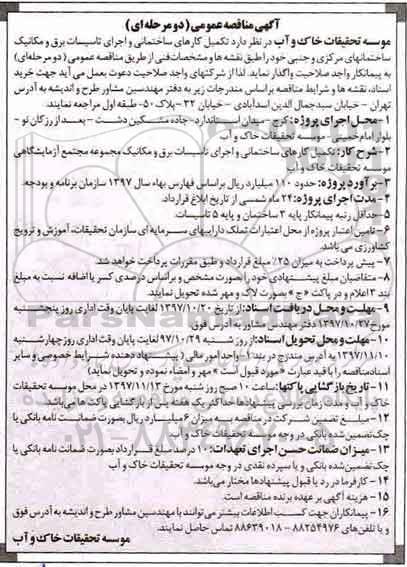 آگهی مناقصه عمومی (دو مرحله ای)
موسسه تحقیقات خاک و آب در نظر دارد تکمیل کارهای ساختمانی و اجرای تاسیسات برق و مکانیک
ساختمانهای مرکزی و جنبی خود را طبق نقشه ها و مشخصات فنی از طریق مناقصه عمومی (دو مرحله ای)
به پیمانکار واجد صلاحیت واگذار نماید. لذا از شرکتهای واجد صلاحیت دعوت بعمل می آید جهت خرید
اسناد، نقشه ها و شرایط مناقصه براساس مندرجات زیر به دفتر مهندسین مشاور طرح و اندیشه به آدرس
تهران - خیابان سیدجمال الدین اسدآبادی - خیابان ۳۲ - پلاک ۵۰ - طبقه اول مراجعه نمایند.
۱- محل اجرای پروژه: کرج - میدان استاندارد- جاده مشکین دشت - بعد از رزکان نو -
بلوار امام خمینی- موسسه تحقیقات خاک و آب
۲- شرح کار: تکمیل کارهای ساختمانی و اجرای تاسیسات برق و مکانیک مجموعه مجتمع آزمایشگاهی
موسسه تحقیقات خاک و آب
۳- برآورد پروژه: حدود ۱۱۰ میلیارد ریال براساس فهارس بهاء سال ۱۳۹۷ سازمان برنامه و بودجه.
۴- مدت اجرای پروژه: ۲۴ ماه شمسی از تاریخ ابلاغ قرارداد.
۵- حداقل رتبه پیمانکار پایه ۳ ساختمان و پایه ۵ تاسیسات.
۶- تامین اعتبار پروژه از محل اعتبارات تملک داراییهای سرمایه ای سازمان تحقیقات، آموزش و ترویج
کشاورزی می باشد.
۷- پیش پرداخت به میزان ۲۵٪ مبلغ قرارداد و طبق مقررات پرداخت خواهد شد.
۸- متقاضیان مبلغ پیشنهادی خود را بصورت مشخص و براساس درصدی کسر یا اضافه نسبت به مبلغ
بند ۳ اعلام و در پاکت « ج » بصورت لاک و مهر شده تحویل نمایند.
۹- مهلت و محل دریافت اسناد: از تاریخ ۱۳۹۷/۱۰/۲۰ لغایت پایان وقت اداری روز پنجشنبه
مورخ ۱۳۹۷/۱۰/۲۷ دفتر مهندس مشاور به آدرس فوق.
۱۰- مهلت و محل تحویل اسناد: از روز شنبه ۹۷/۱۰/۲۹ لغایت پایان وقت اداری روز چهارشنبه
۱۳۹۷/۱۱/۱۰ به آدرس مندرج در بند ۱ - واحد امور مالی ( پیشنهاد دهنده شرایط خصوصی و سایر
اسناد مناقصه را با قید عبارت « مورد قبول است » مهر و امضاء نموده و تحویل نماید)
۱۱- تاریخ بازگشایی پاکتها: ساعت ۱۰ صبح روز شنبه مورخ ۱۳۹۷/۱۱/۱۳ در محل موسسه تحقیقات
خاک و آب و مدت زمان بررسی پیشنهادها حداکثر یک هفته پس از بازگشایی پاکت ها می باشد.
۱۲- مبلغ تضمین شرکت در مناقصه به میزان ۶ میلیارد ریال بصورت ضمانت نامه بانکی یا
چک تضمین شده بانکی در وجه موسسه تحقیقات خاک و آب
۱۳- میزان ضمانت حسن اجرای تعهدات: ۱۰ درصد مبلغ قرارداد بصورت ضمانت نامه بانکی یا
چک تضمین شده بانکی و یا سپرده نقدی در وجه موسسه تحقیقات خاک و آب
۱۴- کارفرما در رد یا قبول پیشنهادها مختار می باشد.
۱۵- هزینه آگهی بر عهده برنده مناقصه است.
۱۶- پیمانکاران جهت کسب اطلاعات بیشتر می توانند با مهندسین مشاور طرح و اندیشه به آدرس فوق
و یا تلفن های ۸۸۲۵۴۹۷۶ - ۸۸۶۳۹۰۱۸ تماس حاصل نمایند.
موسسه تحقیقات خاک و آب